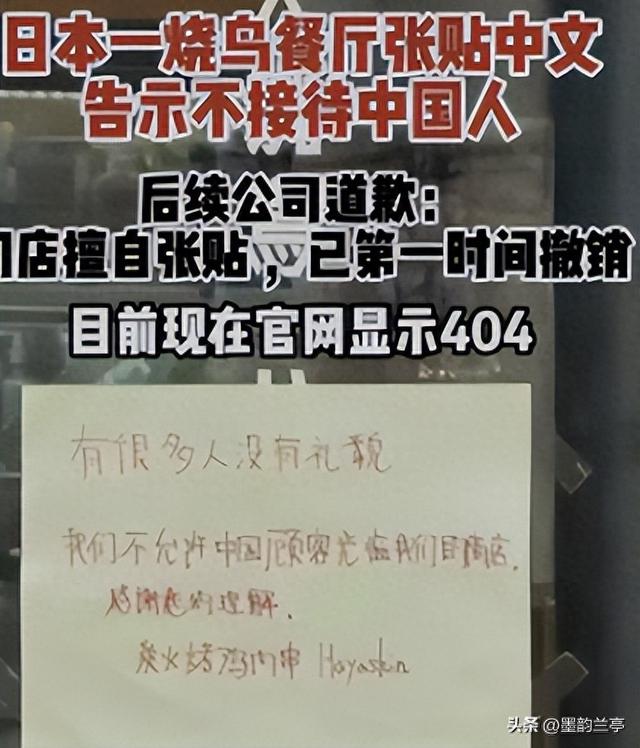 日本一烧鸟餐厅张贴中文
告示不接待中国人
后续公司道歉：
门店擅自张贴，已第一时间撤销
目前现在官网显示404
有很多人没有礼貌
我们不允许中国顾客光临我们的商店.
感谢您的理解.
炭火烤鸡肉串 Hayashin
头条 @墨韵兰亭